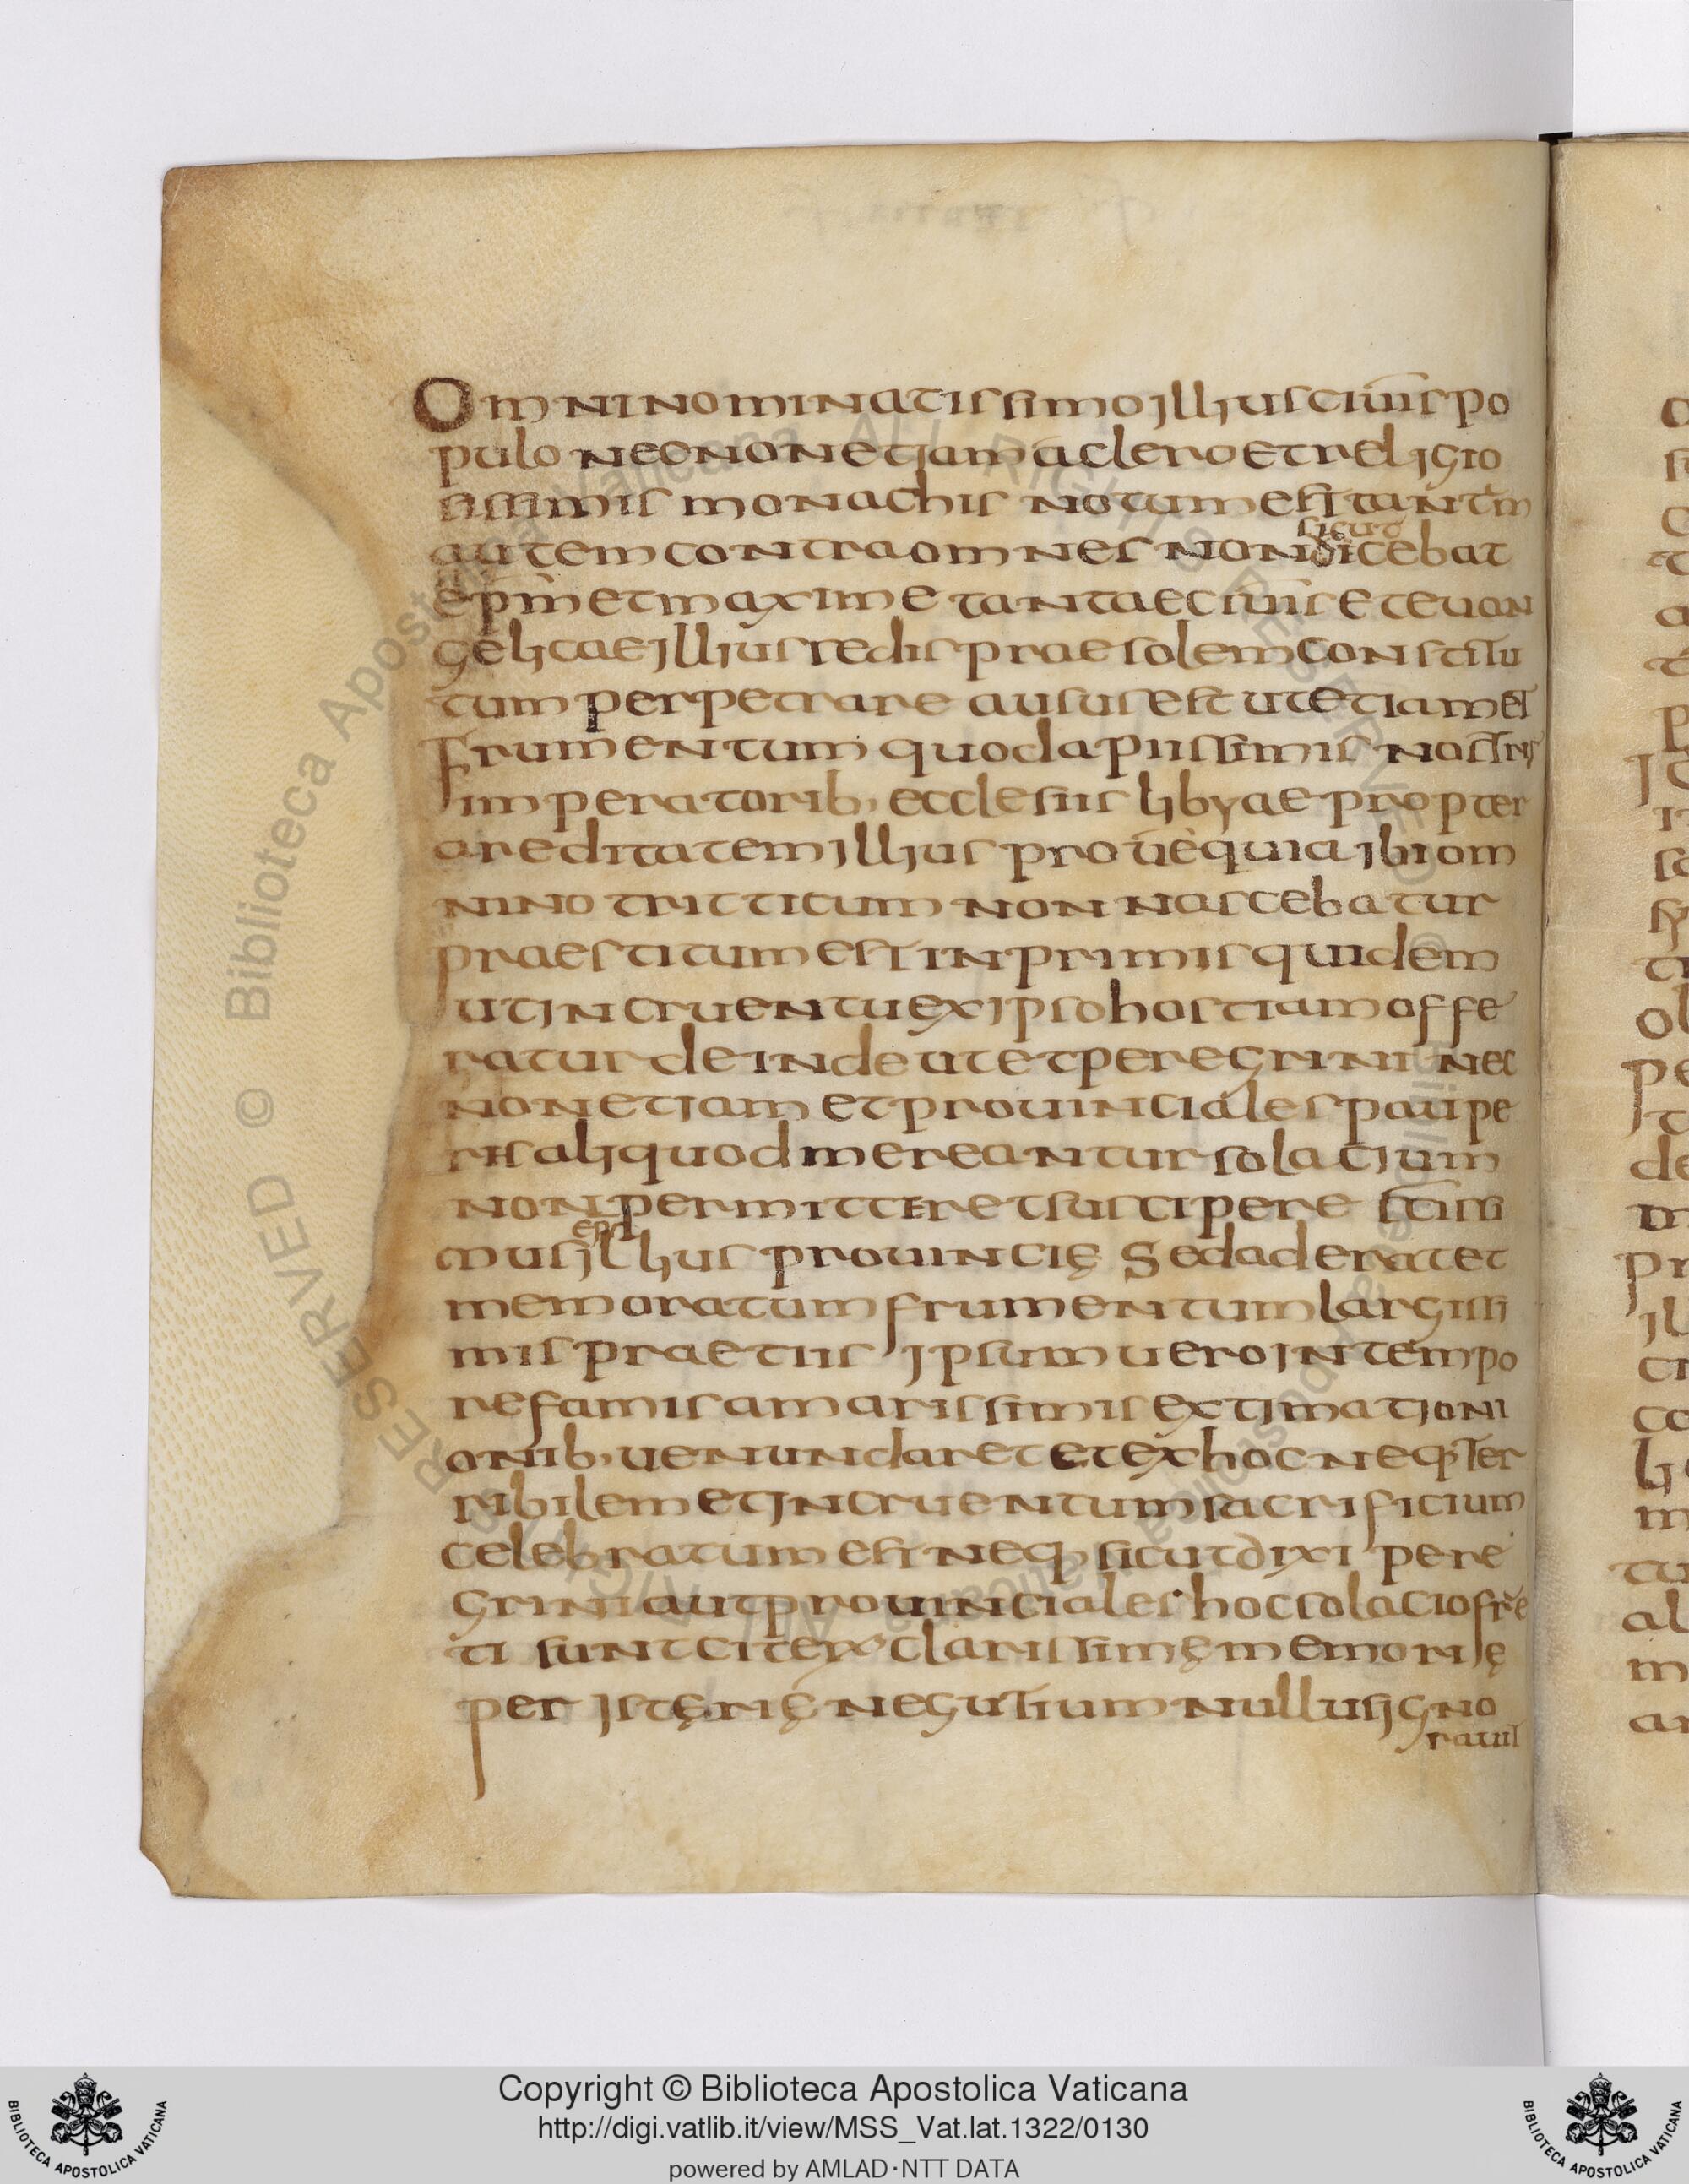 Omninominatissimo illius ciuit̄is po
pulo necnon etiam a clero et religio
sissimis monachis notum est tantū
autem contra omnes non dicebat
sicut
ep̄m et maxime tantae ciuit̄is et euan
gelicae illius sedis praesolem constitu
tum perpetrare ausus est ut etiam et
frumentum quod a piissimis nostris
imperatorib, ecclesiis libyae propter
areditatem illius prouē quia ibi om
nino tritticum non nascebatur
praestitum est inprimis quidem
ut incruentu ex ipso hostiam offe
ratur deinde ut et peregrini nec
non etiam et prouinciales paupe
ris aliquod mereantur solacium
non permitteret suscipere sc̄issi
ep̄s
mus illius prouincię Sed aderat et
memoratum frumentum largissi
mis praetiis ipsum uero in tempo
re famis amarissimis extimationi
onib, uenundaret et ex hoc neq, ter
ribilem et incruentum sacrificium
celebratum est neq, sicut dixi pere
grini aut prouinciales hoc solacio fre
ti sunt citex clarissimę memorię
per istęrię negutium nullus igno
rauit
Copyright © Biblioteca Apostolica Vaticana
http://digi.vatlib.it/view/MSS_Vat.lat.1322/0130
powered by AMLAD·NTT DATA
BIBLIOTECA APOSTOLICA VATICANA
BIBLIOTECA APOSTOLICA VATICANA